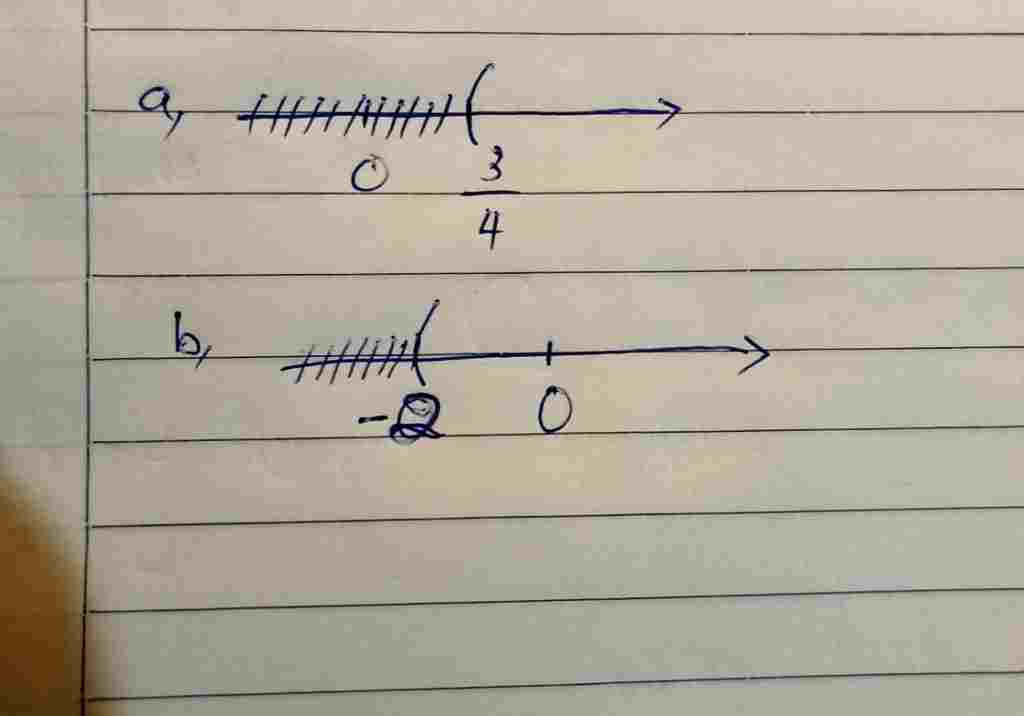 a,
(
0
3
4
b,
(
-2
0